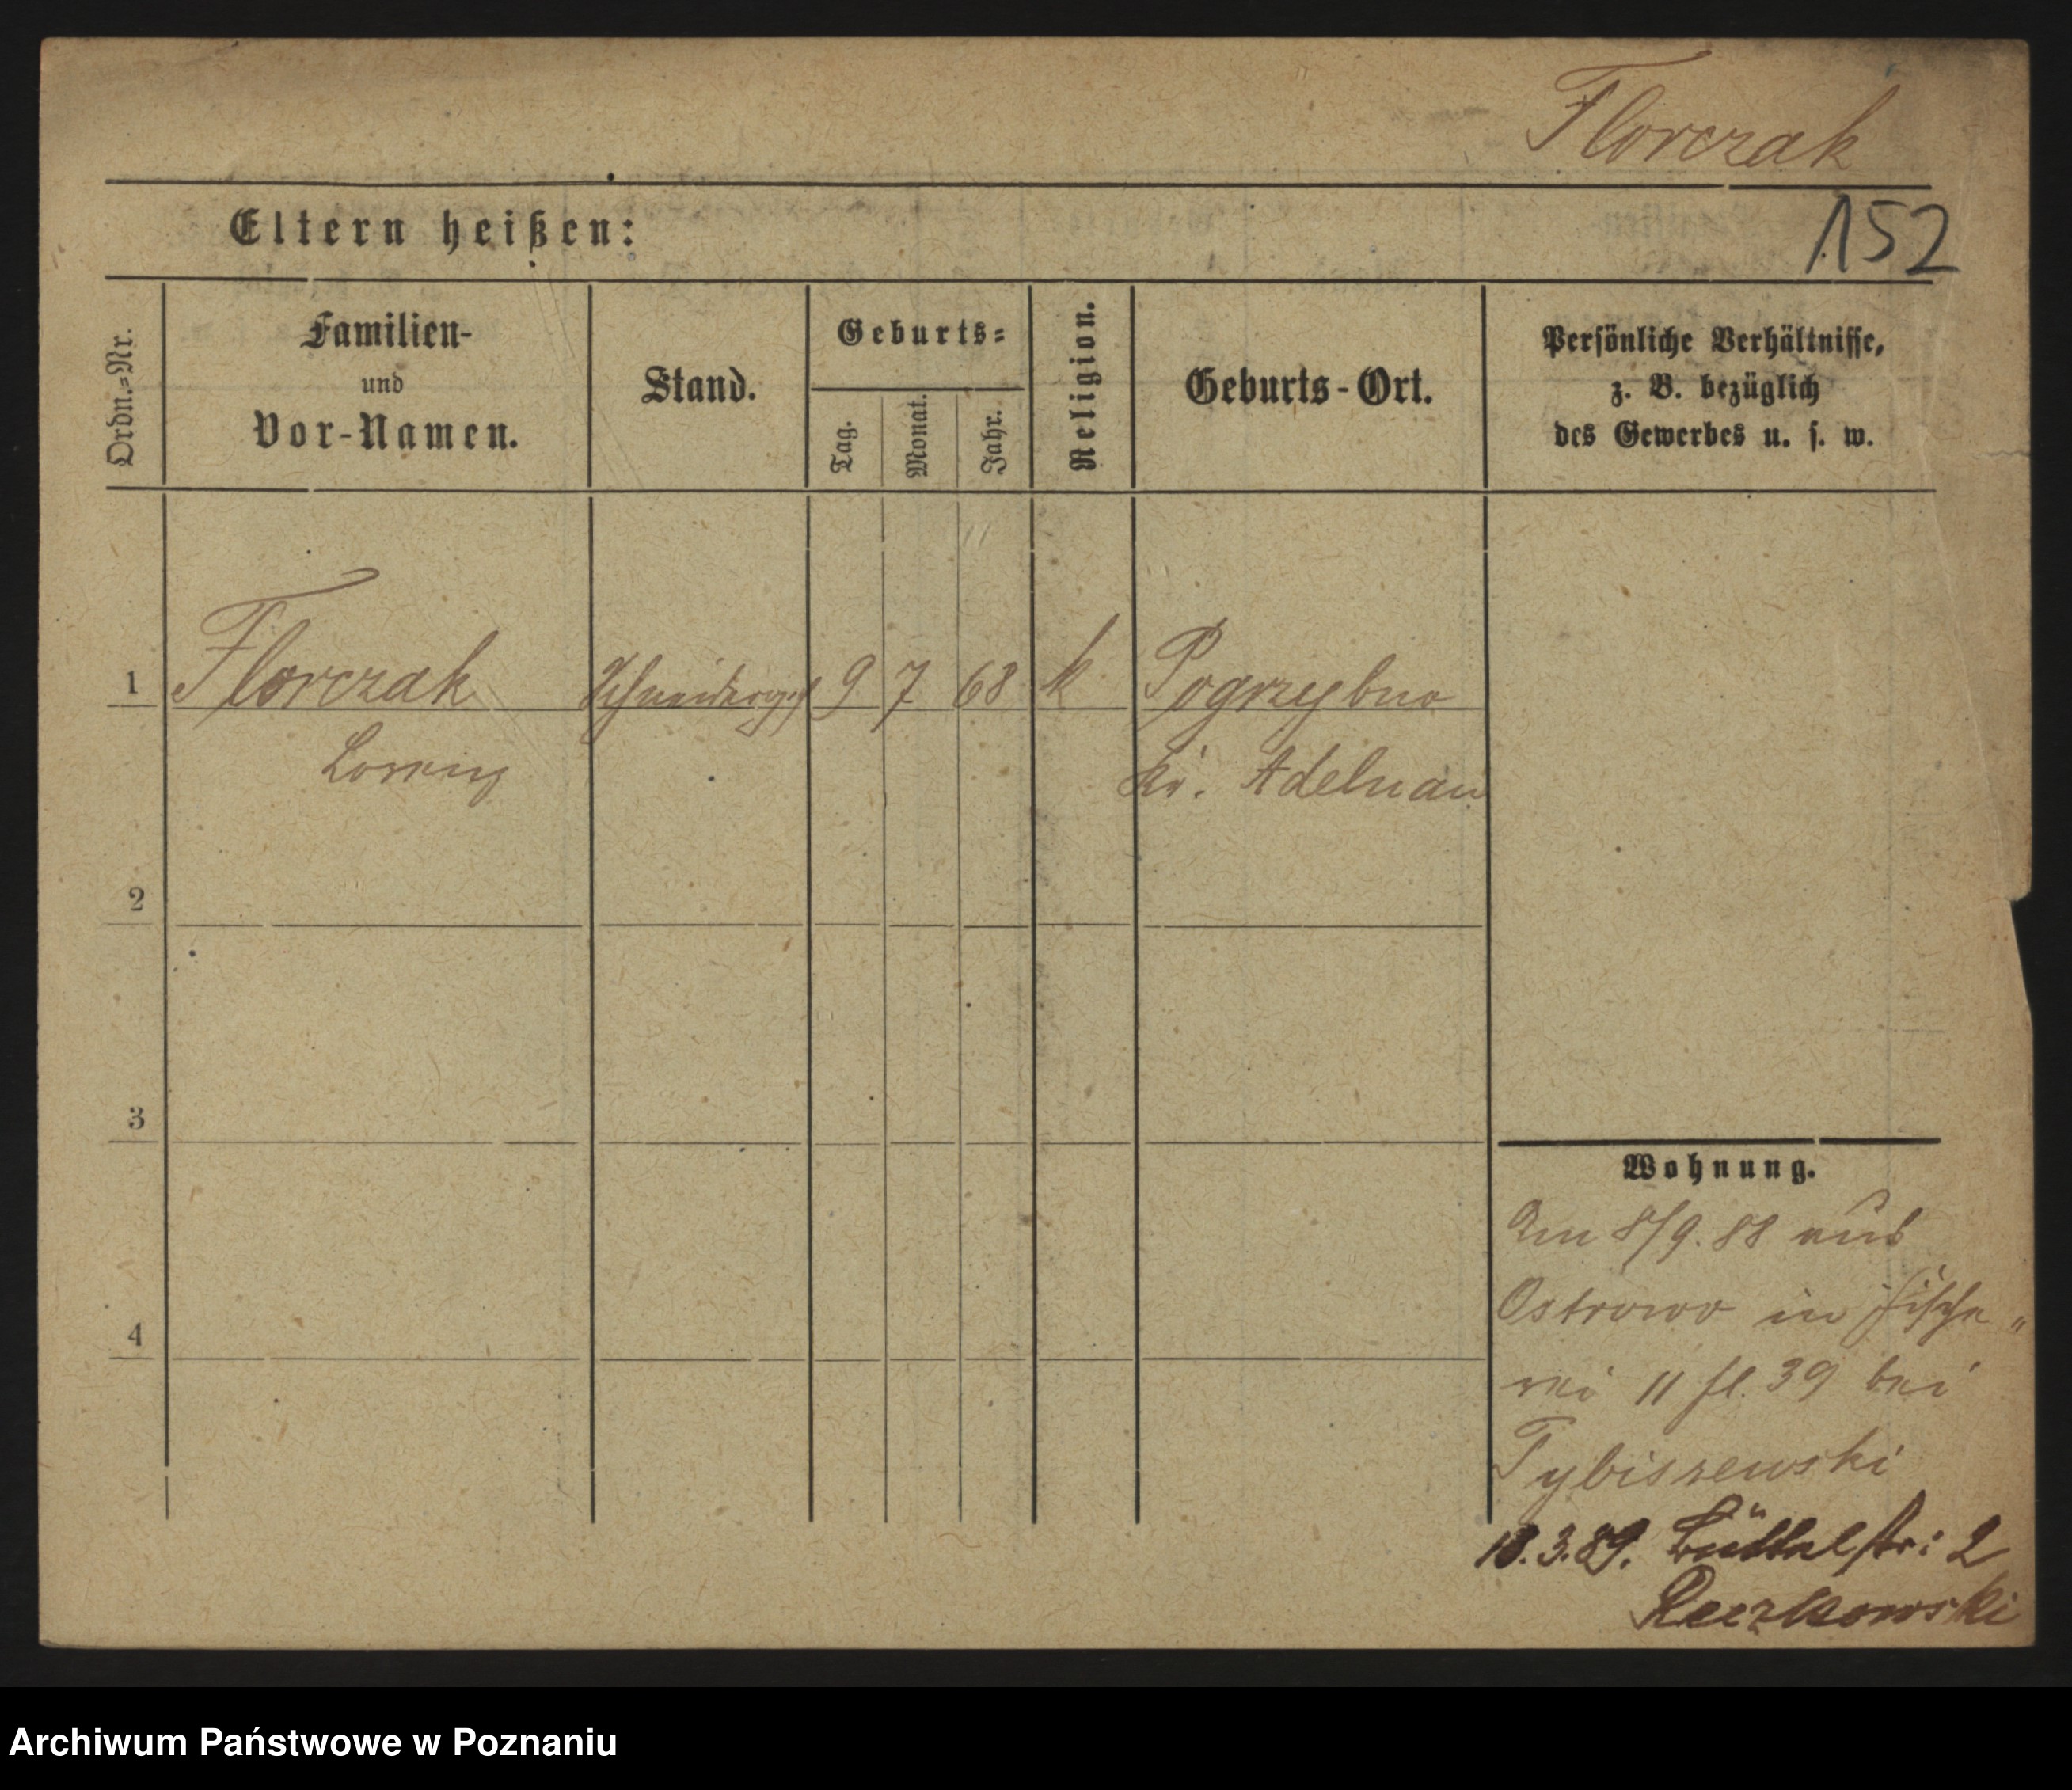 Florczak
Eltern heißen:
152
Ordn.=Nr.
Familien-
und
Vor-Namen.
Stand.
Geburts=
Tag.
Monat.
Jahr.
Religion.
Geburts-Ort.
Persönliche Verhältnisse,
z. B. bezüglich
des Gewerbes u. s. w.
1 Florczak Schneiderges 9 7 68 k Pogrzybno
Lorenz Kr. Adelnau
2
3
4
Wohnung.
Am 8/9. 88 aus
Ostrowo in Fische„
rei 11 fl. 39 bei
Tybiszewski
18. 3. 89. Büttelstr: 2
Reczkowski
Archiwum Państwowe w Poznaniu